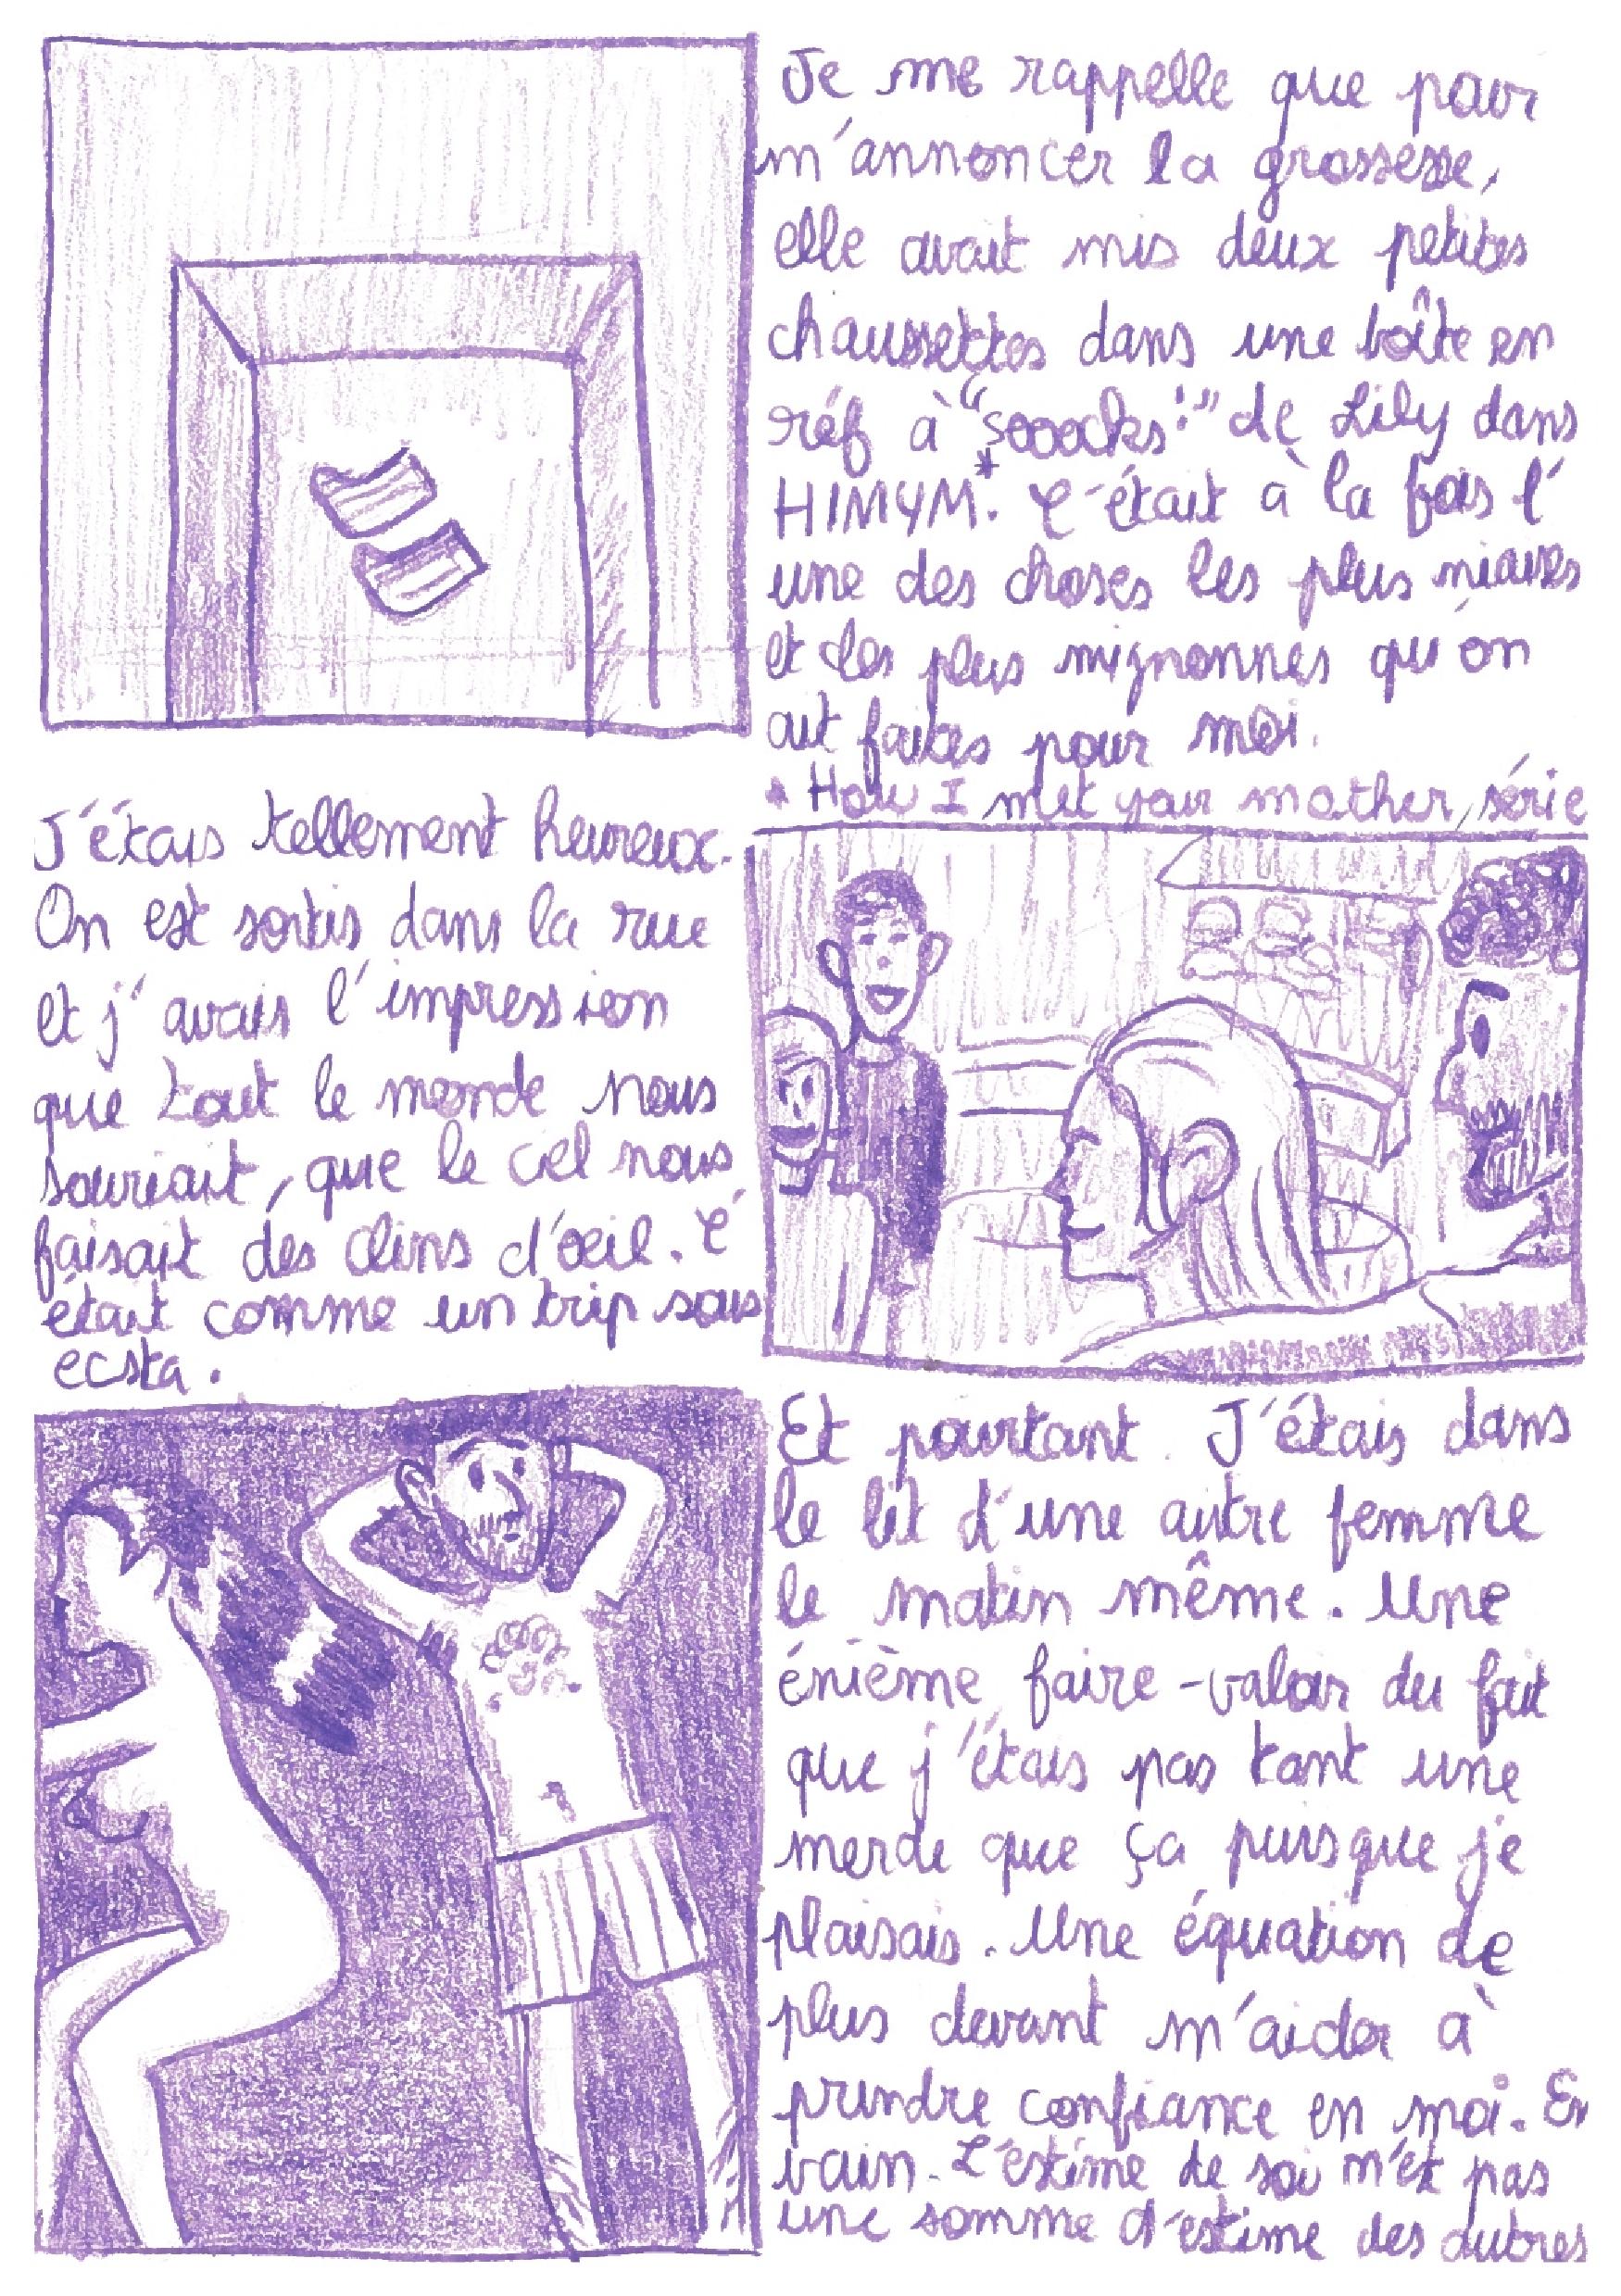 Je me rappelle que pour
m'annoncer la grossesse,
elle avait mis deux petites
chaussettes dans une boîte en
réf à "Sooocks!" de Lily dans
HIMYM*. C'était à la fois l'
une des choses les plus niaises
et les plus mignonnes qu'on
ait faites pour moi.
* How I met your mother, série
J'étais tellement heureux.
On est sortis dans la rue
et j'avais l'impression
que tout le monde nous
souriait, que le ciel nous
faisait des clins d'œil. C'
était comme un trip sous
ecsta.
Et pourtant. J'étais dans
le lit d'une autre femme
le matin même. Une
énième faire-valoir du fait
que j'étais pas tant une
merde que ça puisque je
plaisais. Une équation de
plus devant m'aider à
prendre confiance en moi. En
vain. L'estime de soi n'est pas
une somme d'estime des autres